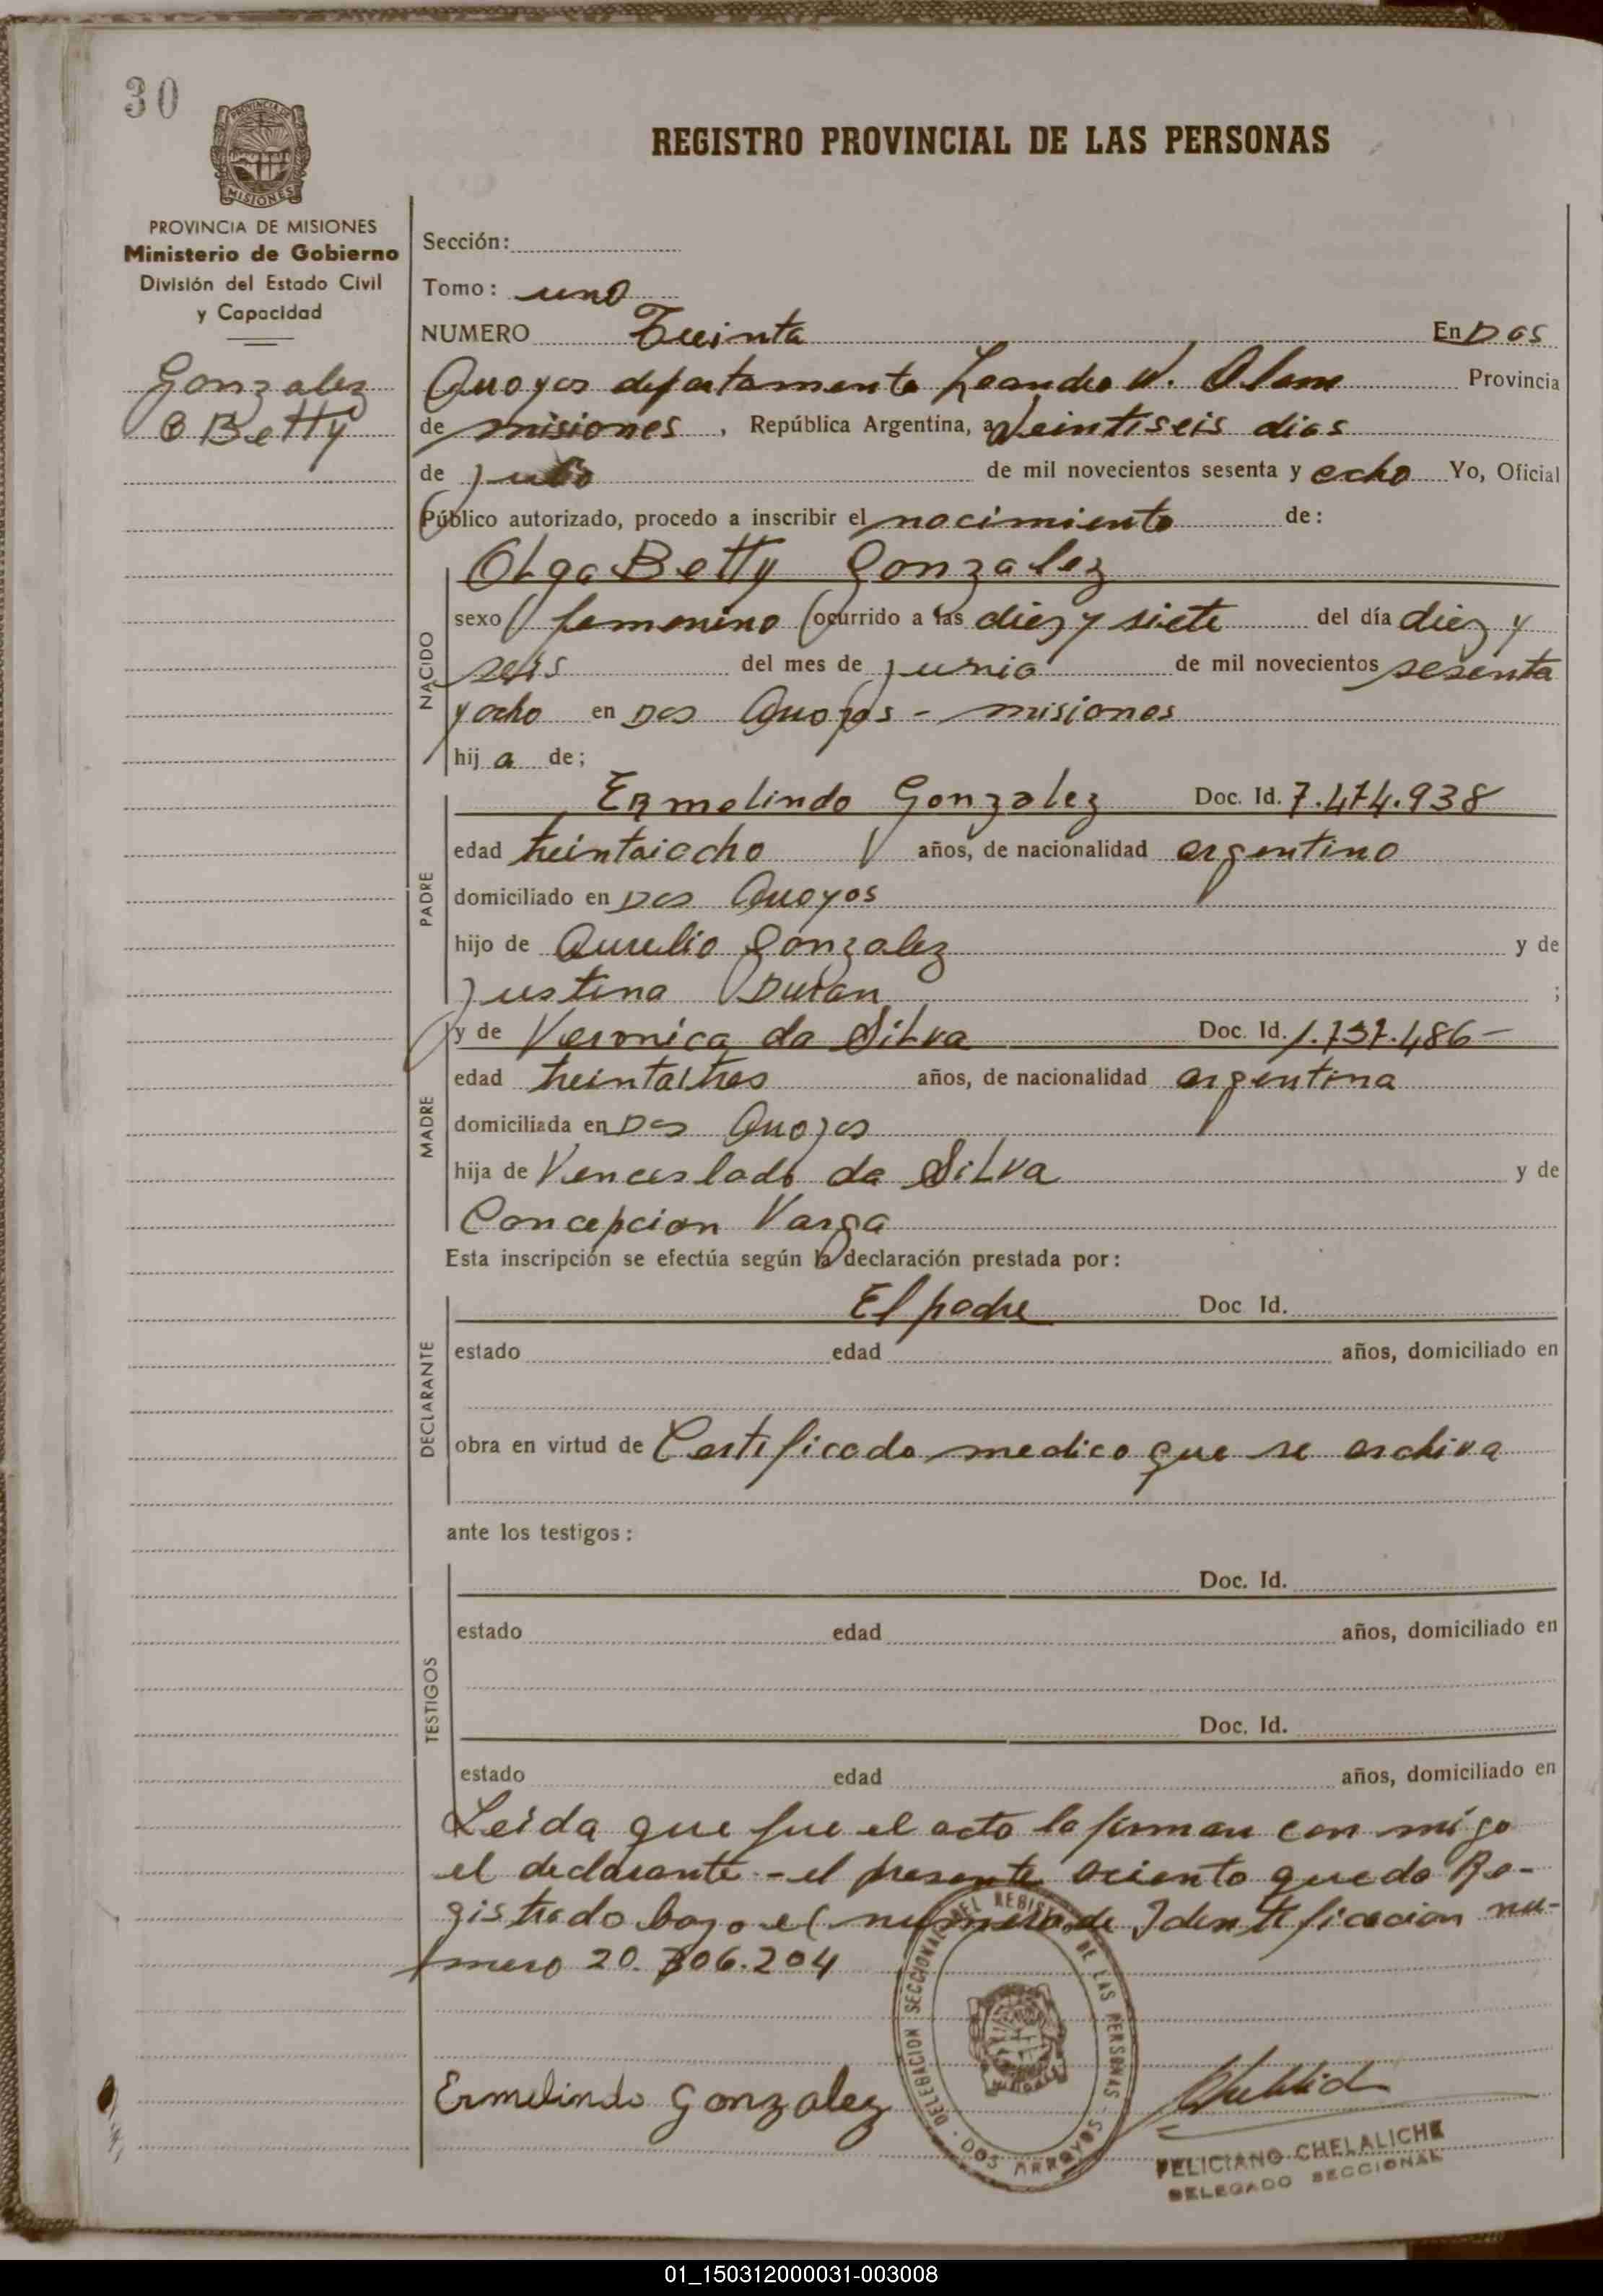 30
PROVINCIA DE
MISIONES
REGISTRO PROVINCIAL DE LAS PERSONAS
PROVINCIA DE MISIONES
Ministerio de Gobierno
División del Estado Civil
y Capacidad
Gonzalez
O Betty
Sección:
Tomo: uno
NUMERO Treinta En Dos
Arroyos departamento Leandro N. Alem Provincia
de misiones, República Argentina, a Veintiseis dias
de de mil novecientos sesenta y ocho Yo, Oficial
Público autorizado, procedo a inscribir el nacimiento de:
Olga Betty Gonzalez
NACIDO
sexo femenino ocurrido a las diez y siete del día diez y
seis del mes de junio de mil novecientos sesenta
y ocho en Dos Arroyos - misiones
hij a de;
PADRE
Ermelindo Gonzalez Doc. Id. 7.474.938
edad treintaiocho años, de nacionalidad argentino
domiciliado en Dos Arroyos
hijo de Aurelio Gonzalez y de
Justina Duran ;
MADRE
y de Veronica da Silva Doc. Id. 1.737.486-
edad treintaitres años, de nacionalidad argentina
domiciliada en Dos Arroyos
hija de Venceslado da Silva y de
Concepcion Varga
Esta inscripción se efectúa según la declaración prestada por:
DECLARANTE
El padre Doc Id.
estado edad años, domiciliado en
obra en virtud de Certificado medico que se archiva
ante los testigos:
TESTIGOS
Doc. Id.
estado edad años, domiciliado en
Doc. Id.
estado edad años, domiciliado en
Leida que fue el acto la firman con migo
el declarante - el presente aciento queda Re-
gistrado bajo el numero de Identificacion nu-
mero 20.306.204
DELEGACION SECCIONAL DEL REGISTRO DE LAS PERSONAS
DOS ARROYOS
Ermelindo Gonzalez
FELICIANO CHELALICHE
DELEGADO SECCIONAL
01_150312000031-003008